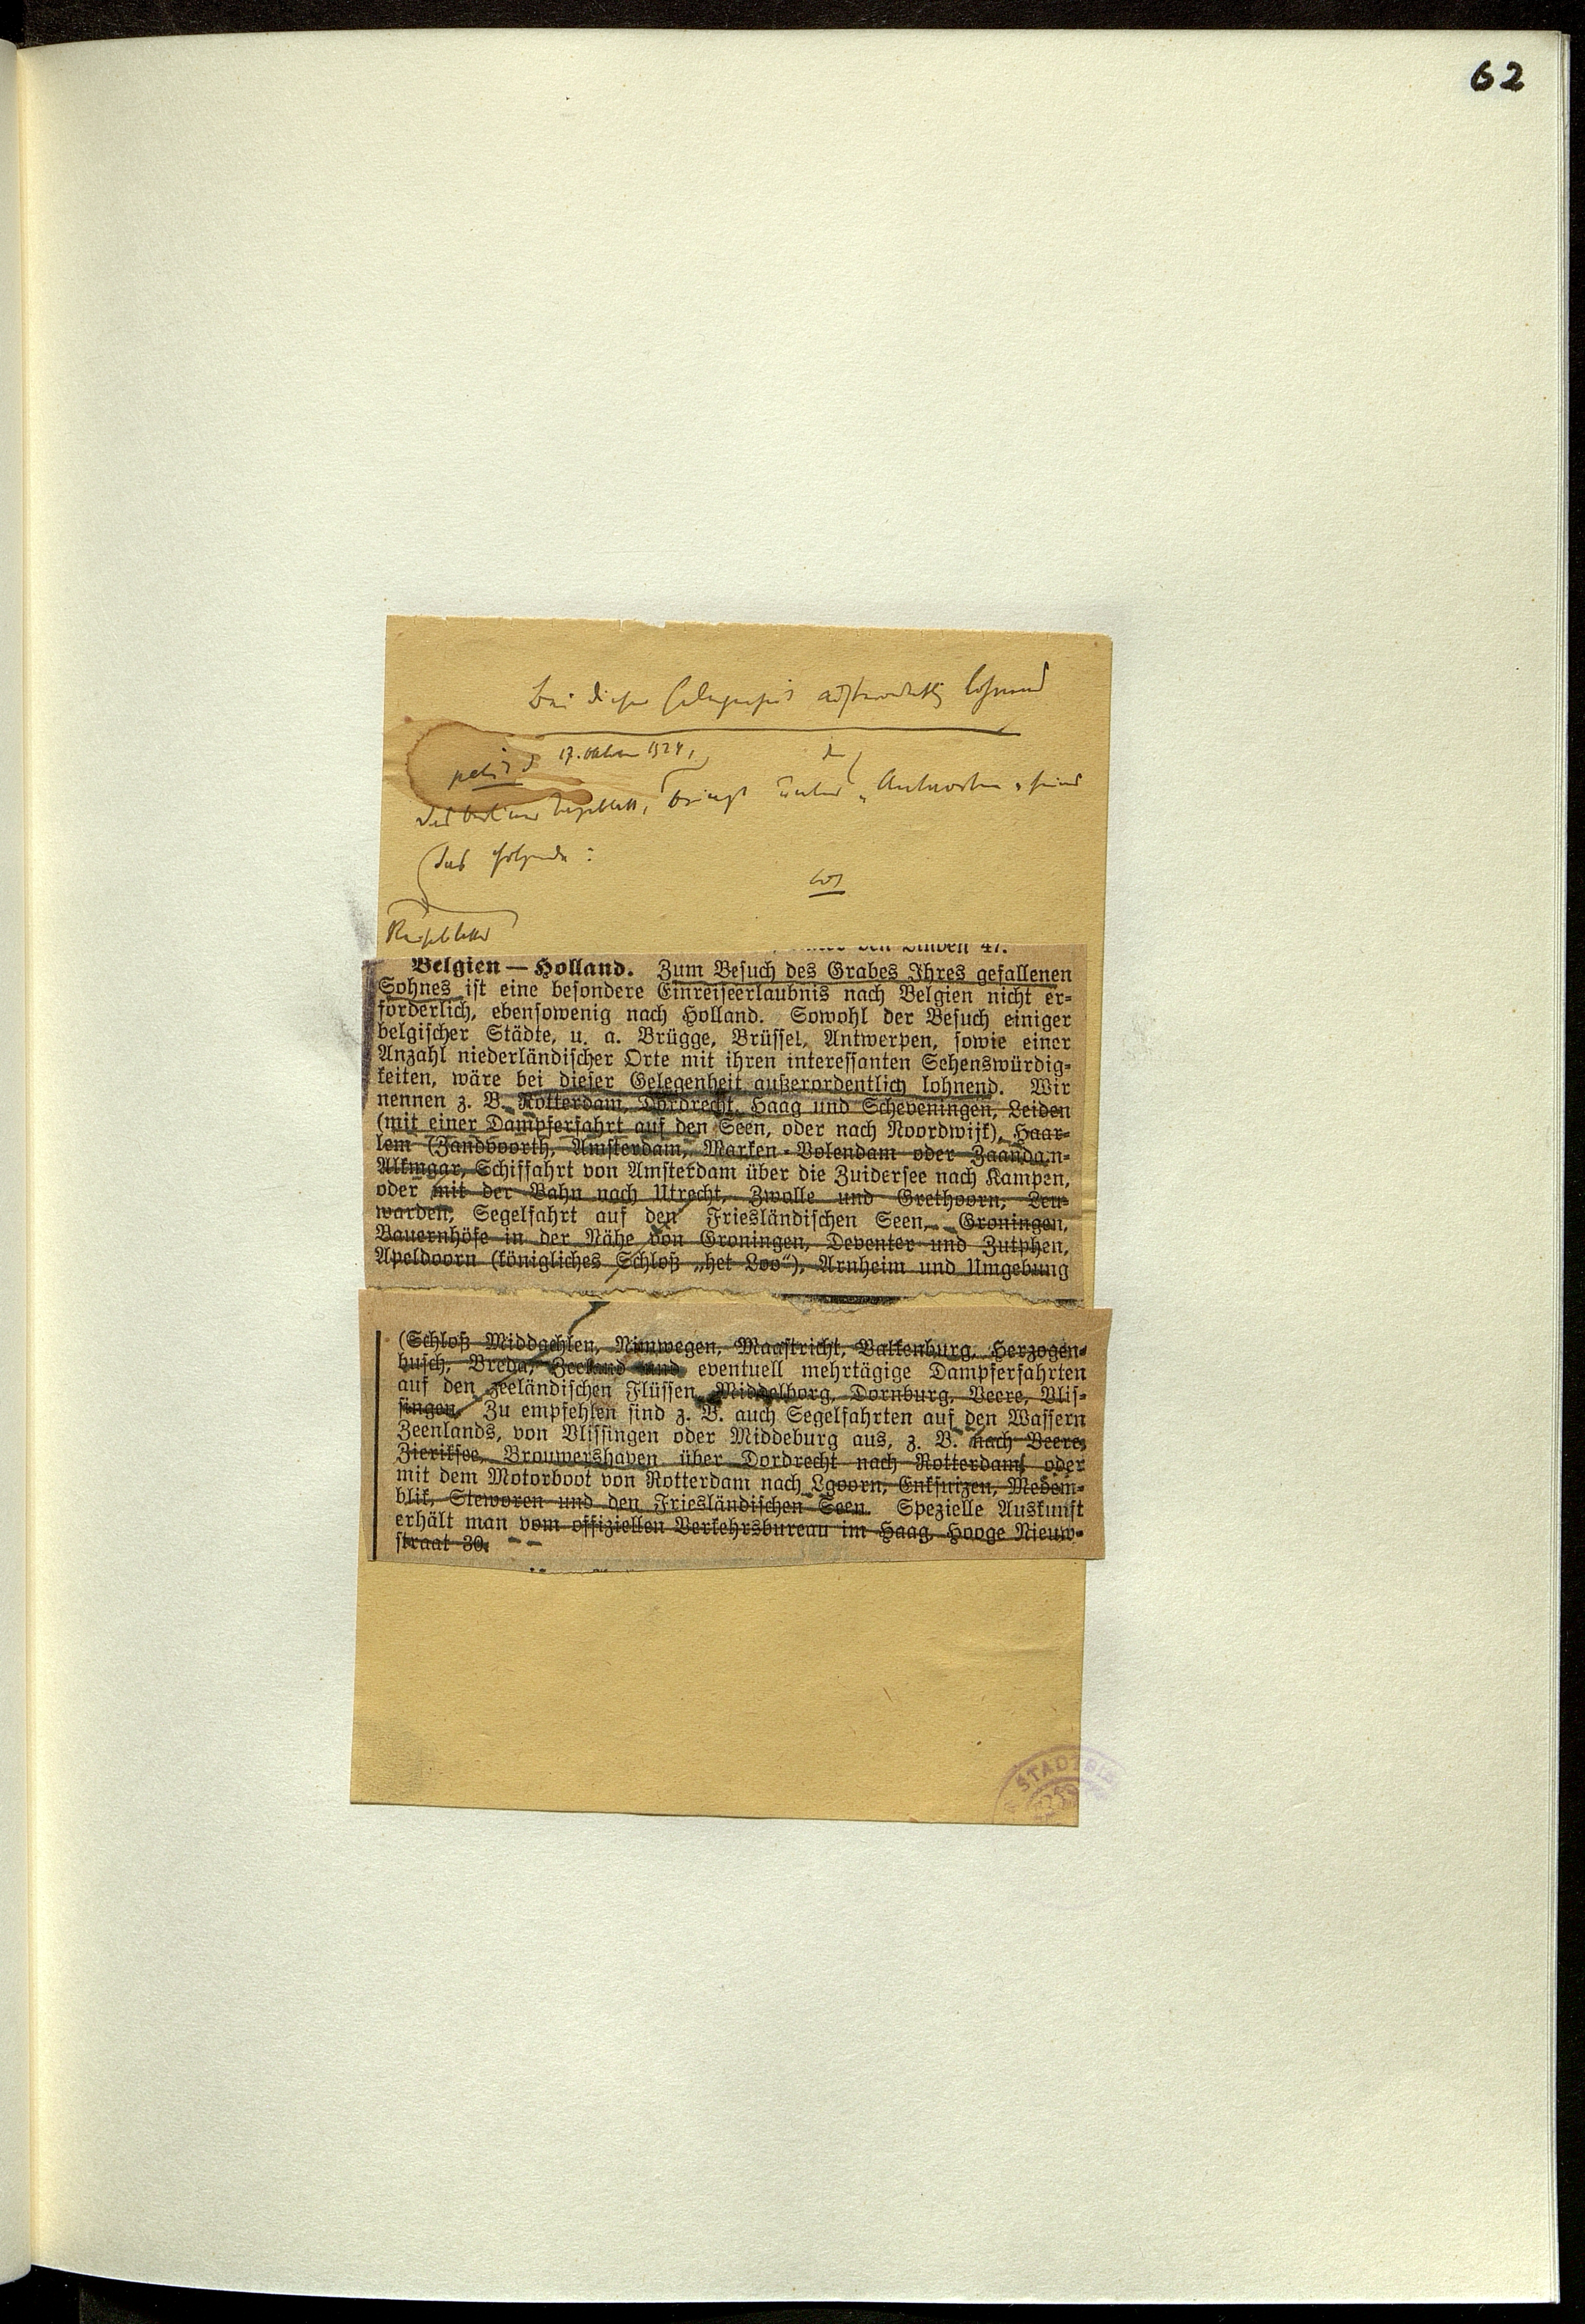 62
Bei dieser Gelegenheit außerordentlich lohnend
17. Oktober 1924,
das Berliner Tageblatt, bringt unter „Antworten" seines
das folgende:
Reiseblattes
den Linden 47.
Belgien — Holland. Zum Besuch des Grabes Ihres gefallenen
Sohnes ist eine besondere Einreiseerlaubnis nach Belgien nicht er-
forderlich, ebensowenig nach Holland. Sowohl der Besuch einiger
belgischer Städte, u. a. Brügge, Brüssel, Antwerpen, sowie einer
Anzahl niederländischer Orte mit ihren interessanten Sehenswürdig-
keiten, wäre bei dieser Gelegenheit außerordentlich lohnend. Wir
nennen z. B. Rotterdam, Dordrecht, Haag und Scheveningen, Leiden
(mit einer Dampferfahrt auf den Seen, oder nach Noordwijk), Haar-
lem (Zandvoorth, Amsterdam, Marken-Volendam oder Zaandam-
Alkmaar, Schiffahrt von Amsterdam über die Zuidersee nach Kampen,
oder mit der Bahn nach Utrecht, Zwolle und Grethoorn, Leu-
warden, Segelfahrt auf den Friesländischen Seen, Groningen,
Bauernhöfe in der Nähe von Groningen, Deventer und Zutphen,
Apeldoorn (königliches Schloß „het Loo"), Arnheim und Umgebung
(Schloß Middachten, Nimwegen, Maastricht, Valkenburg, Herzogen-
busch, Breda, Zeeland und eventuell mehrtägige Dampferfahrten
auf den zeeländischen Flüssen, Middelborg, Dornburg, Veere, Vlis-
singen. Zu empfehlen sind z. B. auch Segelfahrten auf den Wassern
Zeenlands, von Vlissingen oder Middeburg aus, z. B. nach Veere,
Zieriksee, Brouwershaven über Dordrecht nach Rotterdam, oder
mit dem Motorboot von Rotterdam nach Lgoorn, Enkhuizen, Medem-
blik, Steworen und den Friesländischen Seen. Spezielle Auskunft
erhält man vom offiziellen Verkehrsbureau im Haag, Hooge Nieuw-
straat 30.
STADTBI